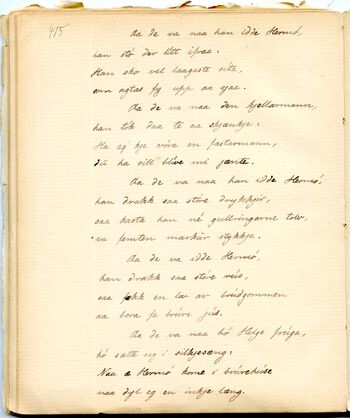 415
Aa de va naa han idde Hermó,
han stó der litt ifraa:
Han sko vel laagaste sita,
som agtas fy upp aa sjaa.
Aa de va naa den kjellarmann,
han tók daa te aa skjænkje:
Ha eg kje vóre en fæstarmann,
du ha sill blive mi jente.
Aa de va naa han idde Hermó,
han drakk saa store drykkjir,
saa kasta han né gullringarne tolv,
va femten markur stykkje.
Aa de va idde Hermó,
han drakk saa store veis,
saa fekk en lov av brúdgommen
aa bera je brúre jús.
Aa de va naa hó Helje friga,
hó sætte seg i silkjesæng:
Naa æ Hermó kome i brúrehuse
naa dyl eg en inkje læng.